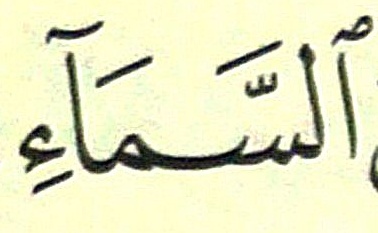 ٱلسَّمَآءِ